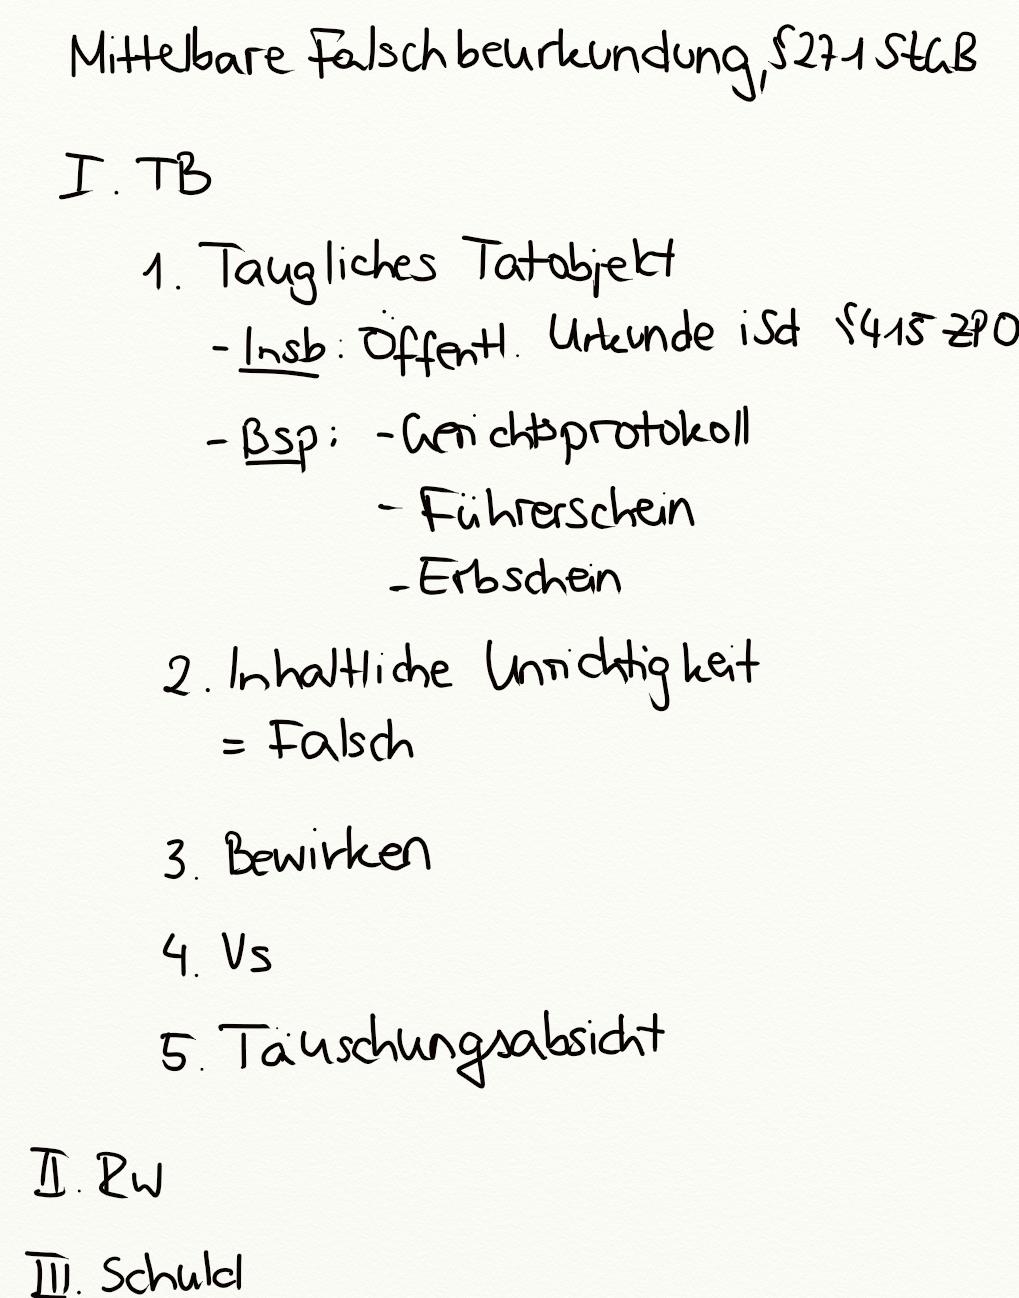 Mittelbare Falschbeurkundung, §271 StGB
I. TB
1. Taugliches Tatobjekt
- Insb: Öffentl. Urkunde iSd §415 ZPO
- Bsp: - Gerichtsprotokoll
- Führerschein
- Erbschein
2. Inhaltliche Unrichtigkeit
= Falsch
3. Bewirken
4. Vs
5. Täuschungsabsicht
II. RW
III. Schuld